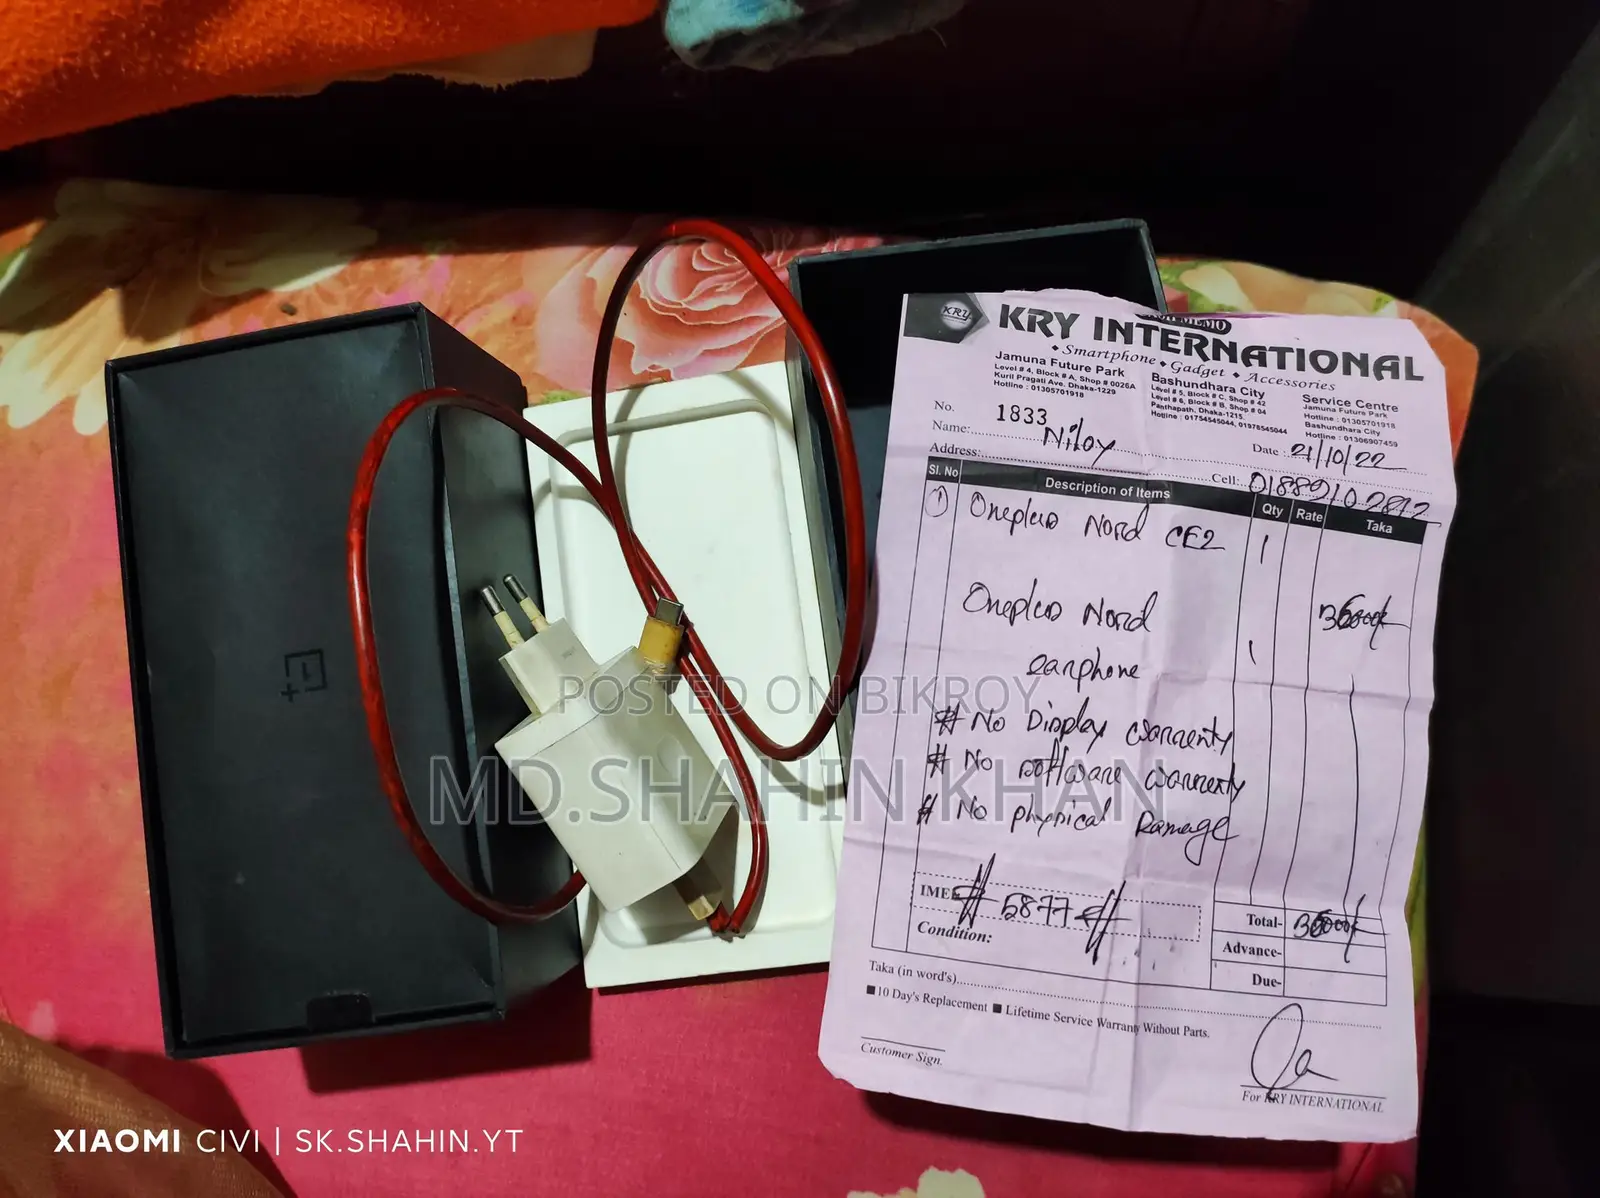 CASH MEMO
KRY
KRY INTERNATIONAL
Smartphone Gadget Accessories
Jamuna Future Park
Level # 4, Block # A, Shop # 0026A
Kuril Pragati Ave. Dhaka-1229
Hotline : 01305701918
Bashundhara City
Level # 5, Block # C, Shop # 42
Level # 6, Block # B, Shop # 04
Panthapath, Dhaka-1215
Hotline : 01754545044, 01978545044
Service Centre
Jamuna Future Park
Hotline : 01305701918
Bashundhara City
Hotline : 01306907459
No. 1833
Name: Niloy
Date : 21/10/22
Address:
Cell:
Sl. No Description of Items Qty Rate Taka
1 Oneplus Nord CE2 1
Oneplus Nord
earphone 1
# No Display warrenty
# No software warrenty
# No physical Damage
IMEI # 5877 #
Condition:
Total-
Advance-
Due-
Taka (in word's)
10 Day's Replacement Lifetime Service Warranty Without Parts.
Customer Sign.
For KRY INTERNATIONAL
POSTED ON BIKROY
MD.SHAHIN KHAN
XIAOMI CIVI | SK.SHAHIN.YT